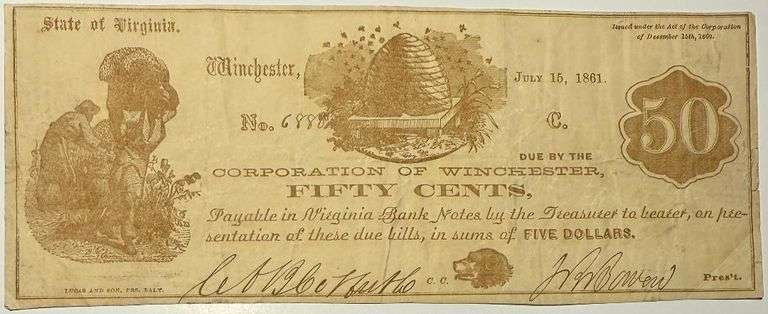 State of Virginia.
Issued under the Act of the Corporation
of December 15th, 1860.
Winchester,
JULY 15, 1861.
No. 6888
C.
50
DUE BY THE
CORPORATION OF WINCHESTER,
FIFTY CENTS,
Payable in Virginia Bank Notes by the Treasurer to bearer, on pre-
sentation of these due bills, in sums of FIVE DOLLARS.
C. C.
Pres't.
LUCAS AND SON, PRS. BALT.